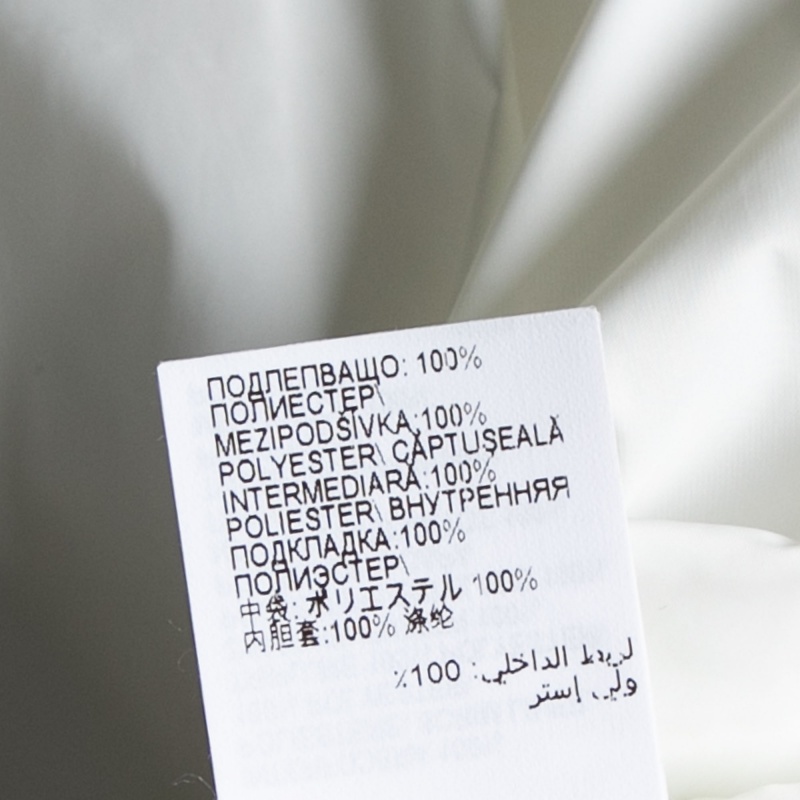 ПОДЛЕПВАЩО: 100%
ПОЛИЕСТЕР\
MEZIPODŠÍVKA:100%
POLYESTER\ CĂPTUȘEALĂ
INTERMEDIARĂ:100%
POLIESTER\ ВНУТРЕННЯЯ
ПОДКЛАДКА:100%
ПОЛИЭСТЕР\
中袋: ポリエステル 100%
内胆套:100% 涤纶
الداخلي: 100٪
إستر